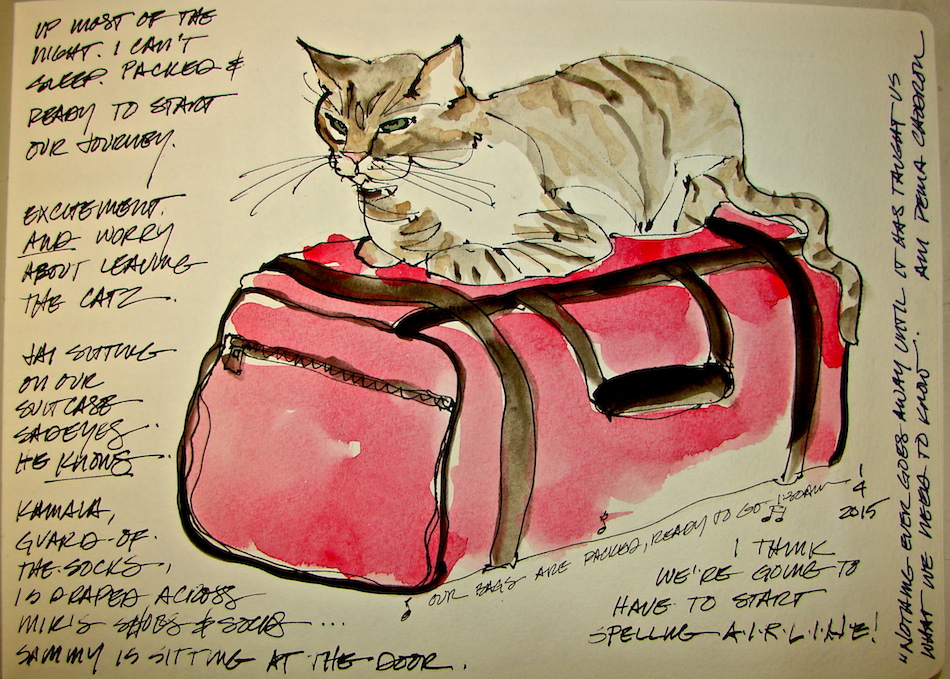 UP MOST OF THE
NIGHT. I CAN'T
SLEEP. PACKED &
READY TO START
OUR JOURNEY.
EXCITEMENT.
AND WORRY
ABOUT LEAVING
THE CATZ.
JAI SITTING
ON OUR
SUITCASE
SADEYES.
HE KNOWS.
KAMALA,
GUARD-OF-
THE-SOCKS,
IS DRAPED ACROSS
MIK'S SHOES & SOCKS ...
SAMMY IS SITTING AT THE DOOR.
OUR BAGS ARE PACKED, READY TO GO 1:30AM
4
2015
I THINK
WE'RE GOING TO
HAVE TO START
SPELLING A·I·R·L·I·N·E!
"NOTHING EVER GOES AWAY UNTIL IT HAS TAUGHT US
WHAT WE NEED TO KNOW. ANI PEMA CHODRON